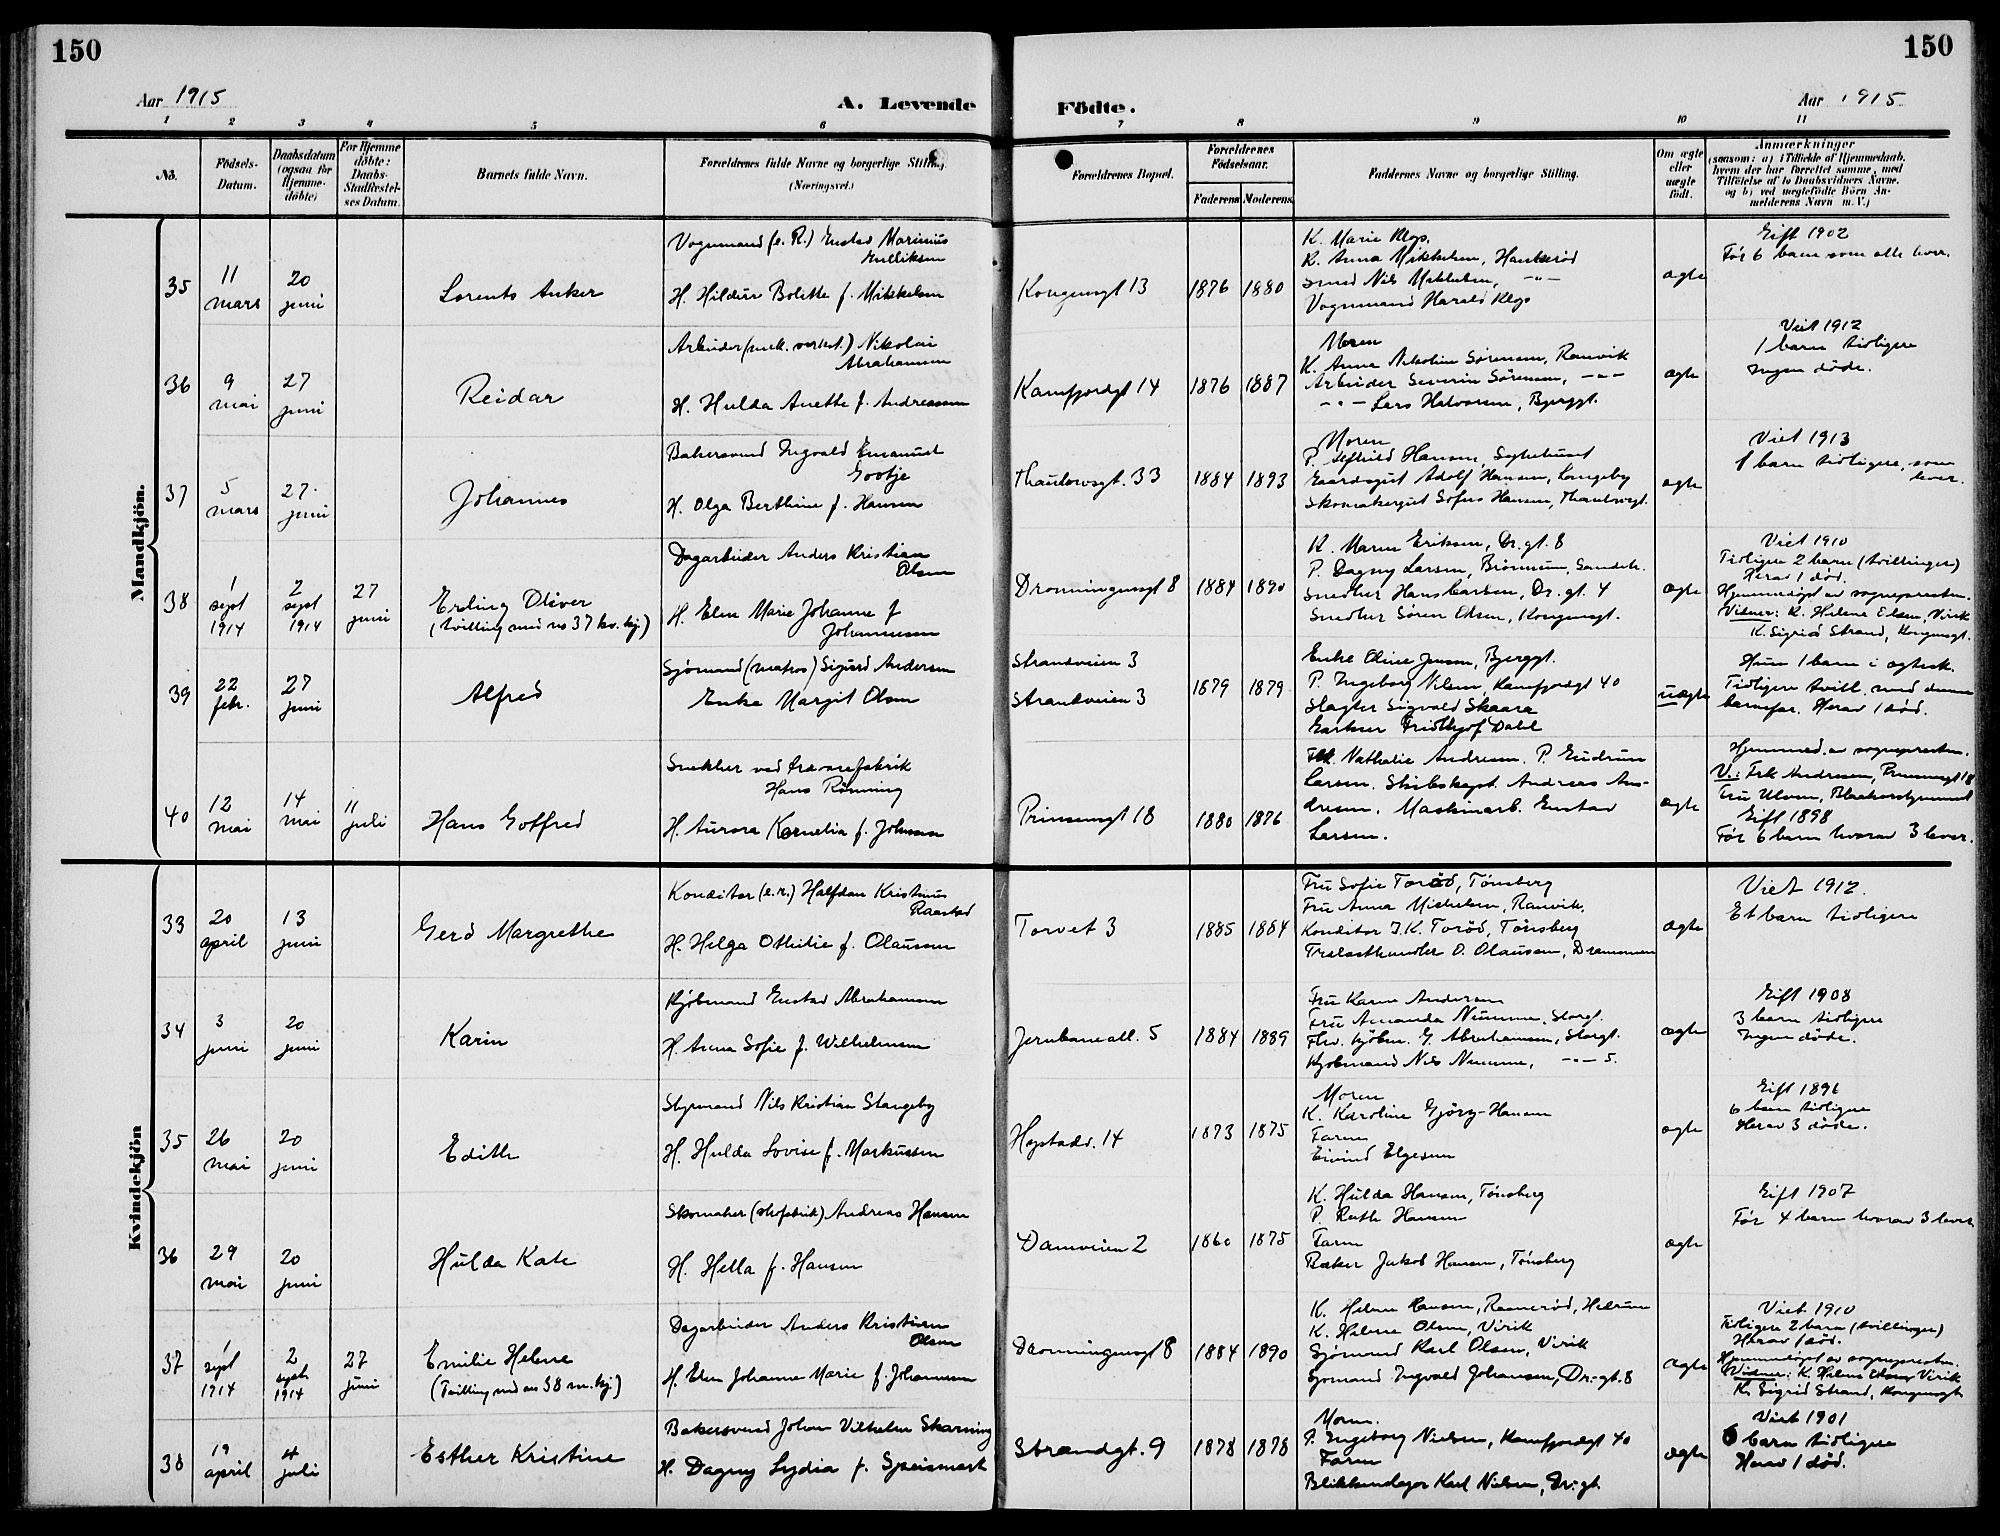 150
150
Aar 1915
A. Levende
Födte.
Aar 1915
1 2 3 4 5 6 7 8 9 10 11
No.
Födsels-Datum.
Daabsdatum (ogsaa for Hjemmedöbte)
For Hjemmedöbte: Daabs-Stadfestelses Datum.
Barnets fulde Navn.
Forældrenes fulde Navne og borgerlige Stilling.
(Næringsvei.)
Forældrenes Bopæl.
Forældrenes Födselsaar.
Faderens Moderens
Faddernes Navne og borgerlige Stilling.
Om ægte eller uægte födt.
Anmærkninger
(saasom: a) i Tilfælde af Hjemmedaab, hvem der har forrettet samme, med Tilföielse af to Daabsvidners Navne, og b) ved uægtefödte Börn Anmelderens Navn m. V.)
Mandkjön.
35
11 mars
20 juni
Lorents Anker
Vognmand (e. R.) Gustav Marinius
Henriksen
H. Hildur Bolette f. Mikkelsen
Kongensgt 13
1876 1880
K. Marie Klop.
K. Anna Mikkelsen, Haukerød
Smed Nils Mikkelsen, -"-
Vognmand Harald Klop
ægte
Gift 1902
Før 6 barn som alle lever.
36
9 mai
27 juni
Reidar
Arbeider (mek. verkst.) Nikolai
Abrahamsen
H. Hulda Anette f. Andreassen
Kamfjordgt 14
1876 1887
Moren
K. Anna Nikoline Sørensen, Ranvik
Arbeider Severin Sørensen, -"-
-"- Lars Halvorsen, Bjerggt.
ægte
Viet 1912
1 barn tidligere
Ingen døde.
37
5 mars
27 juni
Johannes
Bakersvend Ingvald Emanuel
Gootje
H. Olga Berthine f. Hansen
Thaulowsgt. 33
1884 1893
Moren
P. Hansen, Sykehuset
Gaardsgut Adolf Hansen, Langeby
Skomakergut Sofus Hansen, Thaulowsgt.
ægte
Viet 1913
1 barn tidligere, som
lever.
38
1 sept 1914
2 sept 1914
27 juni
Erling Oliver
(tvilling med no 37 kv. kj.)
Dagarbeider Anders Kristian
Olsen
H. Elen Marie Johanne f
Johannessen
Dronningensgt 8
1884 1890
K. Maren Eriksen, Dr. gt. 8
P. Dagny Larsen, Sandeh.
Snedker Hans Larsen, Dr. gt. 4
Snedker Søren Olsen, Kongensgt.
ægte
Viet 1910
Tidligere 2 barn (tvillinger)
Herav 1 død.
Hjemmedøpt av sognepresten.
Vidner: K. Helene Olsen, Virik
K. Sigrid Strand, Kongensgt.
39
22 febr.
27 juni
Alfred
Sjømand (matros) Sigurd Andersen
Enke Margit Olsen
Strandveien 3
Strandveien 3
1879 1879
Enke Oline Jensen, Bjerggt.
P. Ingeborg Nilsen, Kamfjordgt 40
Slagter Sigvald Skaara
Gartner Fridthjof Dahl
uægte
Hun 1 barn i egtesk.
Tidligere tvill. med denne
barnefar. Herav 1 død.
40
12 mai
14 mai
11 juli
Hans Gotfred
Snekker ved trævarefabrik
Hans Rønning
H. Aurora Kornelia f. Johnsen
Prinsensgt 18
1880 1876
Frk. Nathalie Andresen. P. Gudrun
Larsen. Skibskapt. Andreas An-
dresen. Maskinarb. Gustav
Larsen.
ægte
Hjemmed. av sognepresten.
V.: Frk Andresen, Prinsensgt 18
Fru Ulven,
Gift 1898
Før 6 barn hvorav 3 lever.
Kvindekjön
33
20 april
13 juni
Gerd Margrethe
Konditor (e. r.) Halfdan Kristinus
Raastad
H. Helga Othilie f. Olaussen
Torvet 3
1885 1884
Fru Sofie Torød, Tønsberg
Fru Anna Michelsen, Ranvik,
Konditor J. K. Torød, Tønsberg
Trælasthandler O. Olaussen, Drammen
ægte
Viet 1912.
Et barn tidligere
34
3 juni
20 juni
Karin
Kjøbmand Gustav Abrahamsen
H. Anna Sofie f. Wilhelmsen
Jernbaneall. 5
1884 1889
Fru Karen Andersen
Fru Amanda Numme, Storgt.
Fhv. kjøbm. G. Abrahamsen, Storgt.
Kjøbmand Nils Numme, -"- 5.
ægte
Gift 1908
3 barn tidligere
Ingen døde.
35
26 mai
20 juni
Edith
Styrmand Nils Kristian Stangeby
H. Hulda Lovise f. Markussen
Hystadv. 14
1873 1875
Moren
K. Karoline Gjørg-Hansen
Faren
Eivind Elgesem
ægte
Gift 1896
6 barn tidligere
Herav 3 døde.
36
29 mai
20 juni
Hulda Kate
Skomaker (skofabrik) Andreas Hansen
H. Hella f. Hansen
Damveien 2
1860 1875
K. Hulda Hansen, Tønsberg
P. Ruth Hansen
Faren
Baker Jakob Hansen, Tønsberg
ægte
Gift 1907
Før 4 barn hvorav 3 lever
37
1 sept 1914
2 sept. 1914
27 juni
Emilie Helene
(Tvilling med no 38 m. kj.)
Dagarbeider Anders Kristian
Olsen
H. Elen Johanne Marie f. Johannessen
Dronningensgt 8
1884 1890
K. Helene Hansen, Raanerød, Hedrum
K. Helene Olsen, Virik
Sjømand Karl Olsen, Virik
Sjømand Ingvald Johansen, Dr. gt. 8
ægte
Viet 1910
Tidligere 2 barn (tvillinger)
Herav 1 død.
Hjemmedøpt av sognepresten.
Vidner: K. Helene Olsen, Virik
K. Sigrid Strand, Kongensgt
38
19 april
4 juli
Esther Kristine
Bakersvend Johan Vilhelm Skarning
H. Dagny Lydia f. Speismark
Strandgt. 9
1878 1878
Moren.
P. Ingeborg Nielsen, Kamfjordgt 40
Faren
Blikkenslager Karl Nilsen, Dr. gt.
ægte
Viet 1901
6 barn tidligere
Herav 1 død.